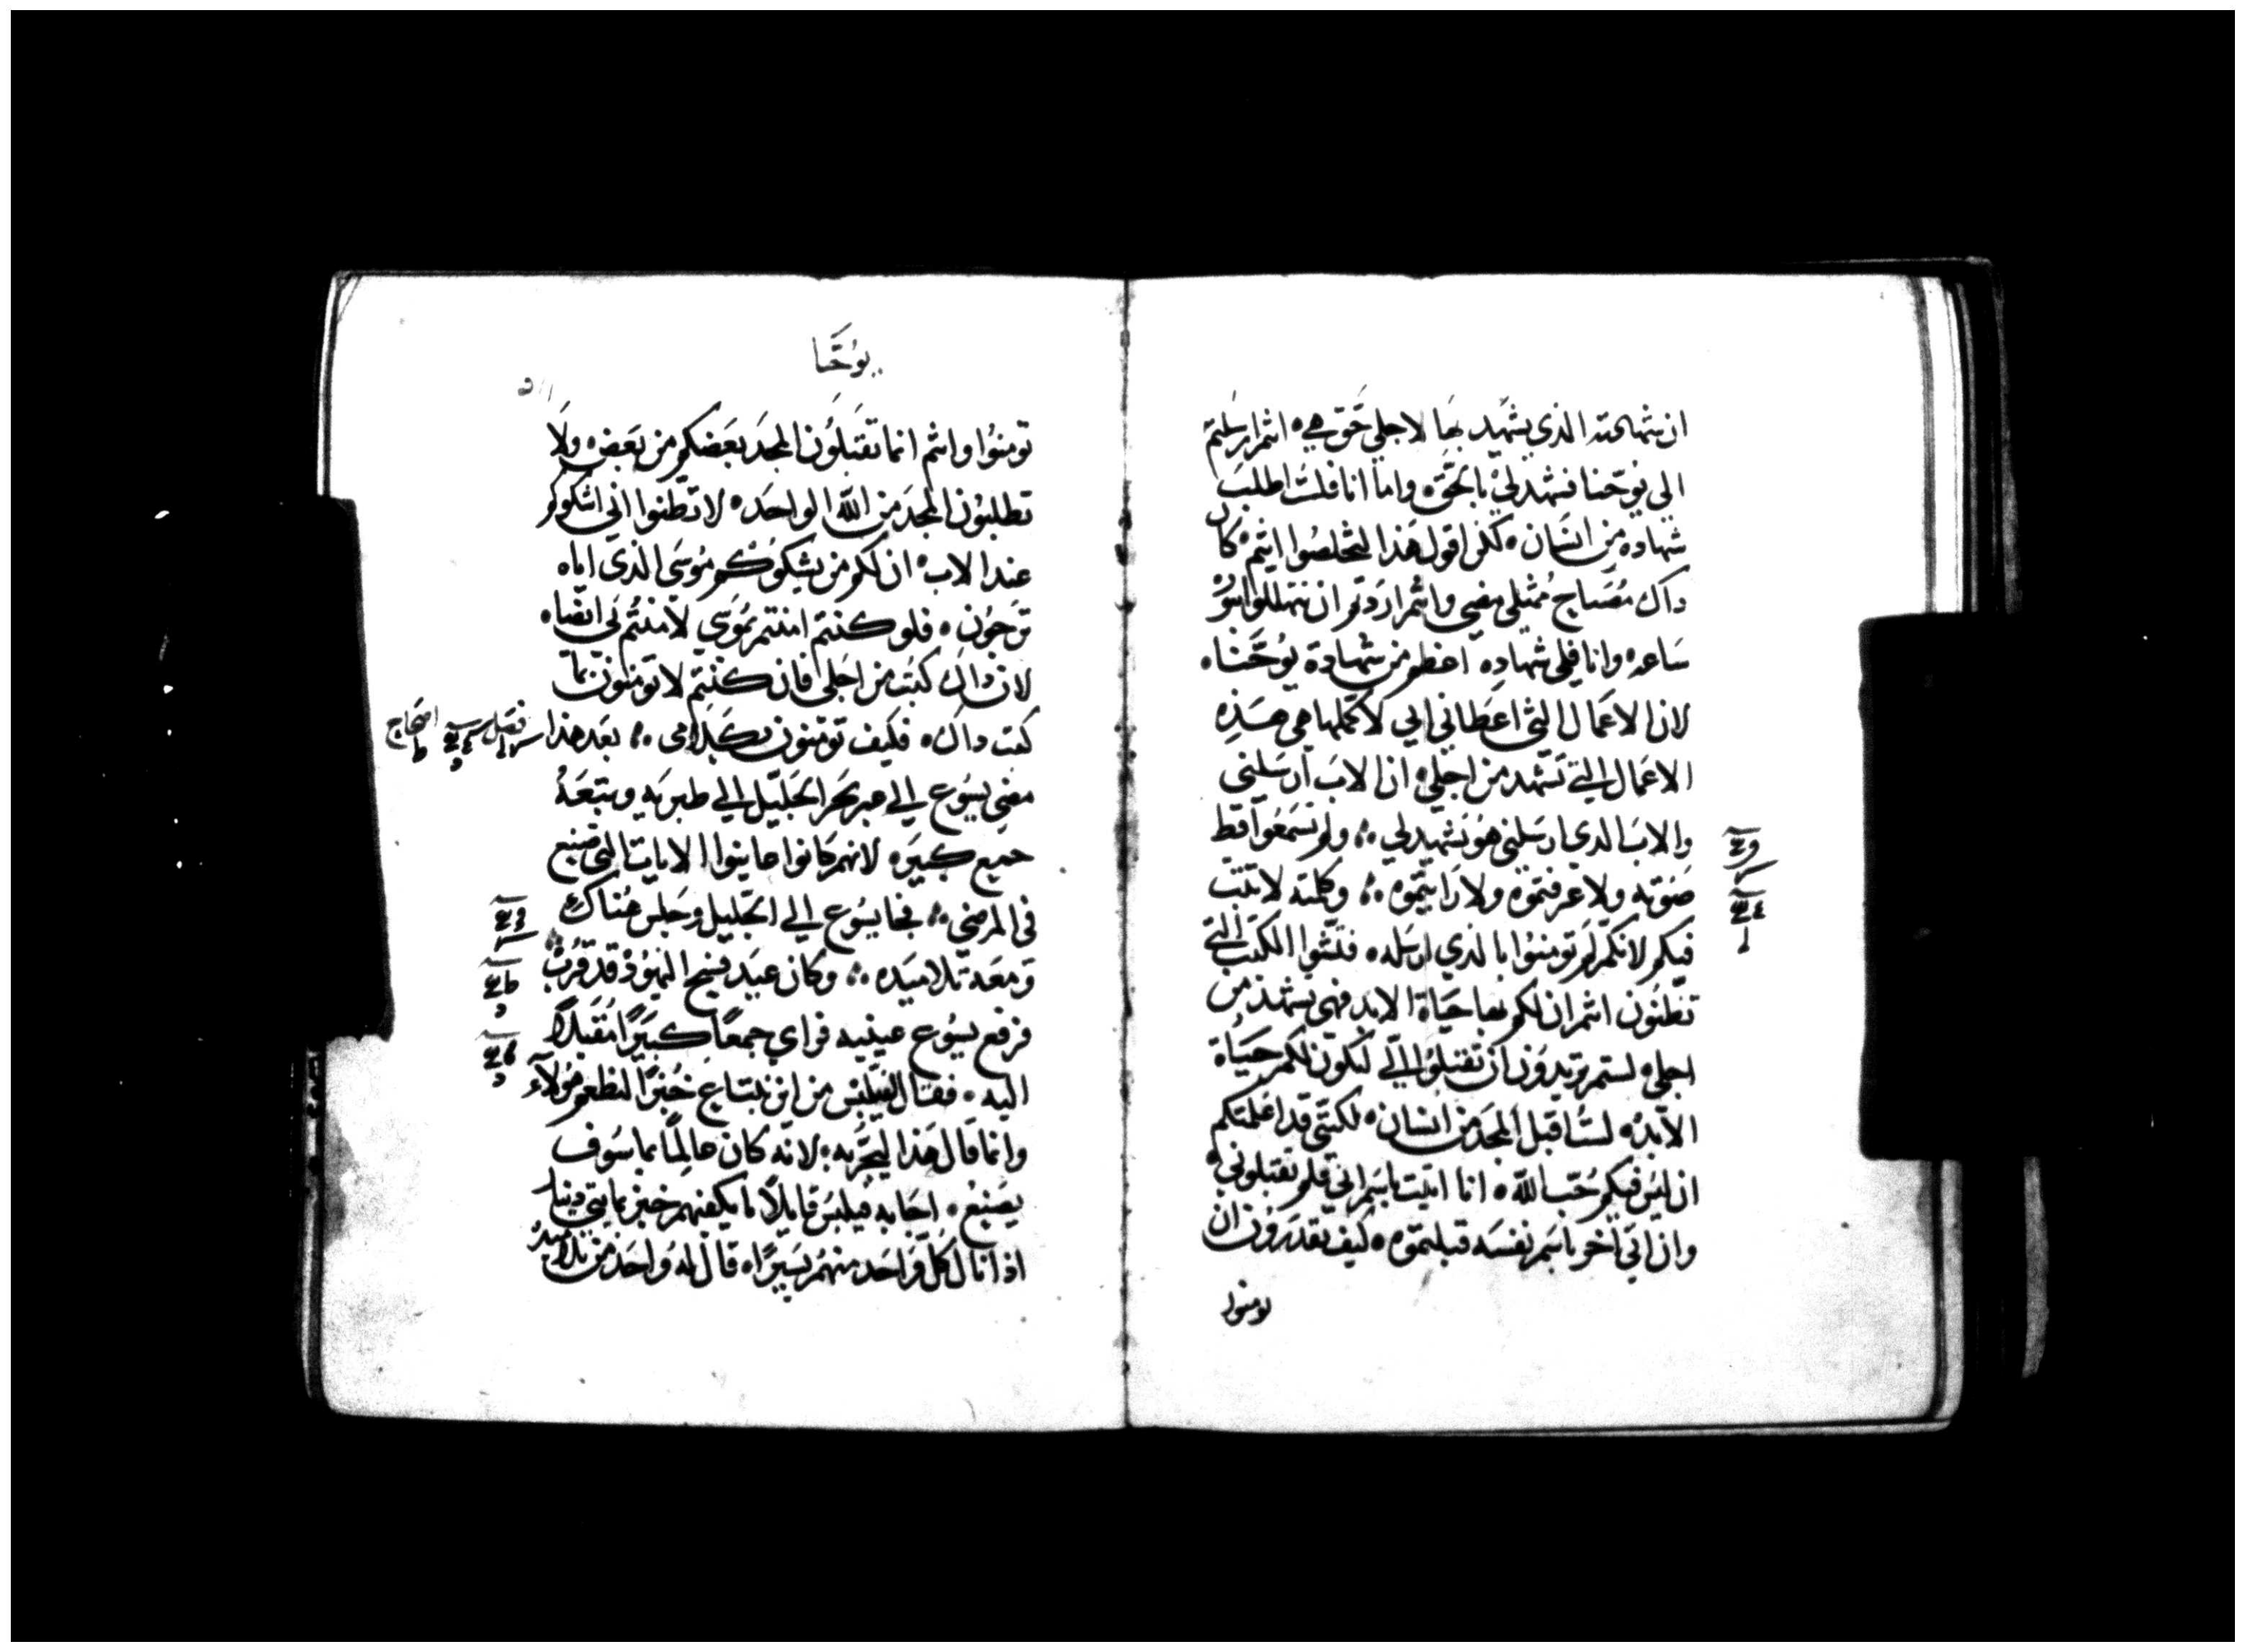 ان شهادته الذي يشهد بها لاجلي حق هي ه انتم ارسلتم
الي يوحنا فشهد لي بالحق ه واما انا فلست اطلب
شهاده من انسان ه لكني اقول هذا لتخلصوا انتم ه كان
داك مصباح ممتلي مضي وانتم اردتم ان تتهللوا بنوره
ساعه ه وانا فلي شهاده اعظم من شهادة يوحنا ه
لان الاعمال التي اعطاني ابي لاكملها هي هذه
الاعمال التي تشهد من اجلي ه ان الاب ارسلني
والاب الدي ارسلني هو يشهد لي ؞ ولم تسمعوا قط
صوته ولا عرفتموه ولا رايتموه ؞ وكلمته لا تثبت
فيكم لانكم لم تومنوا بالذي ارسله ه فتشوا الكتب التي
تظنون انتم ان لكم بها حياة الابد فهي تشهد من
اجلي ه لستم تريدون ان تقبلوا الي لتكون لكم حياة
الابد ه لست اقبل المجد من انسان ه لكنني قد اعلمتكم
ان ليس فيكم حب الله ه انا اتيت باسم ابي فلم تقبلوني ه
وان اتي اخر باسم نفسه قبلتموه ه كيف تقدرون ان
تومنوا
يوحنا
تومنوا وانتم انما تقبلون المجد بعضكم من بعض ه ولا
تطلبون المجد من الله الواحد ه لا تظنوا اني اشكوكم
عند الاب ه ان لكم من يشكوكم موسى الذي اياه
ترجون ه فلو كنتم امنتم بموسي لامنتم لي ايضا ه
لان داك كتب من اجلي فان كنتم لا تومنون بما
كتب داك ه فكيف تومنون بكلامي ؞ بعد هذا
فصل
اصحاح
مضي يسوع الي عبر بحر الجليل الي طبريه وتبعه
جميع كبيره لانهم كانوا عاينوا الايات التي صنع
في المرضي ؞ فجا يسوع الي الجليل وجلس هناك
ومعه تلاميده ؞ وكان عيد فسح اليهود قد قرب
فرفع يسوع عينيه فراي جمعًا كبيرًا مقبلًا
اليه ه فقال لفيلبس من اين نبتاع خبزًا لنطعم هولآء
وانما قال هذا ليجربه ه لانه كان عالمًا بما سوف
يصنع ه اجابه فيلبس قايلًا ما يكفيهم خبز بمايتي دينار
اذا نال كل واحد منهم يسيرًا ه قال له واحد من تلاميده